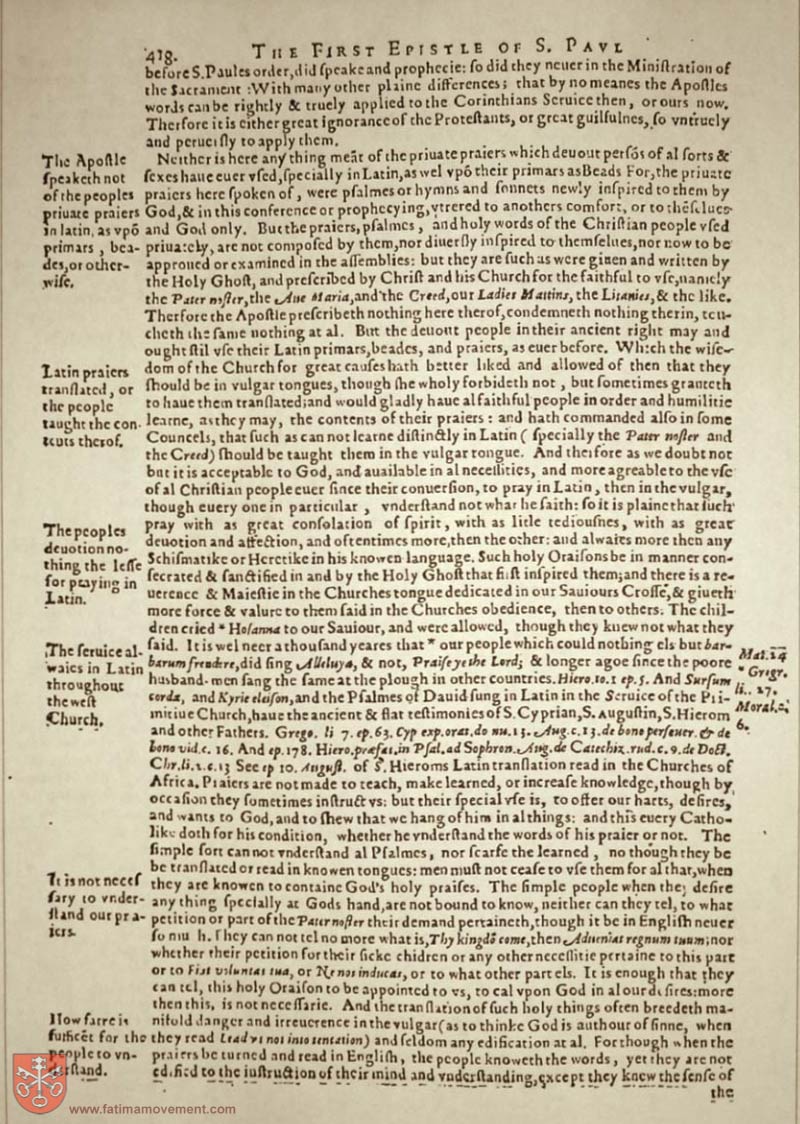 418.
THE FIRST EPISTLE OF S. PAVL
before S. Paules order, did ſpeake and prophecie: ſo did they neuer in the Miniſtration of
the Sacrament: With many other plaine differences; that by no meanes the Apoſtles
words can be rightly & truely applied to the Corinthians Seruice then, or ours now.
Therfore it is either great ignorance of the Proteſtants, or great guilfulnes, ſo vntruely
and peruerſly to apply them.
The Apoſtle
ſpeaketh not
of the peoples
priuate praiers
in latin, as vpõ
primars, bea-
des, or other-
wiſe.
Neither is here any thing meãt of the priuate praiers which deuout perſõs of al ſorts &
ſexes haue euer vſed, ſpecially in Latin, as wel vpõ their primars as Beads For, the priuate
praiers here ſpoken of, were pſalmes or hymns and ſonnets newly inſpired to them by
God, & in this conference or prophecying, vttered to anothers comfort, or to thẽſelues
and God only. But the praiers, pſalmes, and holy words of the Chriſtian people vſed
priuately, are not compoſed by them, nor diuerſly inſpired to themſelues, nor now to be
approued or examined in the aſſemblies: but they are ſuch as were giuen and written by
the Holy Ghoſt, and preſcribed by Chriſt and his Church for the faithful to vſe, namely
the Pater noſter, the Aue Maria, and the Creed, our Ladies Mattins, the Litanies, & the like.
Therfore the Apoſtle preſcribeth nothing here therof, condemneth nothing therin, tou-
cheth the ſame nothing at al. But the deuout people in their ancient right may and
ought ſtil vſe their Latin primars, beades, and praiers, as euer before. Which the wiſe-
Latin praiers
tranſlated, or
the people
taught the con-
tents therof.
dom of the Church for great cauſes hath better liked and allowed of then that they
ſhould be in vulgar tongues, though ſhe wholy forbideth not, but ſometimes granteth
to haue them tranſlated; and would gladly haue al faithful people in order and humilitie
learne, as they may, the contents of their praiers: and hath commanded alſo in ſome
Councels, that ſuch as can not learne diſtinctly in Latin (ſpecially the Pater noſter and
the Creed) ſhould be taught them in the vulgar tongue. And therfore as we doubt not
but it is acceptable to God, and auailable in al neceſſities, and more agreable to the vſe
of al Chriſtian people euer ſince their conuerſion, to pray in Latin, then in the vulgar,
though euery one in particular, vnderſtand not what he ſaith: ſo it is plaine that ſuch
The peoples
deuotion no-
thing the leſſe
for praying in
Latin.
pray with as great conſolation of ſpirit, with as litle tediouſnes, with as great
deuotion and affection, and oftentimes more, then the other: and alwaies more then any
Schiſmatike or Heretike in his knowen language. Such holy Oraiſons be in manner con-
ſecrated & ſanctified in and by the Holy Ghoſt that firſt inſpired them; and there is a re-
uerence & Maieſtie in the Churches tongue dedicated in our Sauiours Croſſe, & giueth
more force & valure to them ſaid in the Churches obedience, then to others. The chil-
dren cried * Hoſanna to our Sauiour, and were allowed, though they knew not what they
The ſeruice al-
waies in Latin
throughout
the weſt
Church.
ſaid. It is wel neer a thouſand yeares that * our people which could nothing els but bar-
barum frendere, did ſing Alleluya, & not, Praiſe ye the Lord; & longer agoe ſince the poore
husband-men ſang the ſame at the plough in other countries. Hiero. to. 1 ep. 5. And Surſum
corda, and Kyrie eleiſon, and the Pſalmes of Dauid ſung in Latin in the Seruice of the Pri-
mitiue Church, haue the ancient & flat teſtimonies of S. Cyprian, S. Auguſtin, S. Hierom
and other Fathers. Grego. li 7. ep. 63. Cyp exp. orat. do nu. 13. Aug. c. 13. de bono perſeuer. & de
bono vid. c. 16. And ep. 178. Hiero. præfat. in Pſal. ad Sophron. Aug. de Catechiz. rud. c. 9. de Doct.
Chr. li. 2. c. 13 See ep 10. Auguſt. of S. Hieroms Latin tranſlation read in the Churches of
Mat. 24
* Gregr.
li. 27.
Moral. c.
6.
Africa. Praiers are not made to teach, make learned, or increaſe knowledge, though by
occaſion they ſometimes inſtruct vs: but their ſpecial vſe is, to offer our harts, deſires,
and wants to God, and to ſhew that we hang of him in al things: and this euery Catho-
like doth for his condition, whether he vnderſtand the words of his praier or not. The
ſimple ſort can not vnderſtand al Pſalmes, nor ſcarſe the learned, no though they be
be tranſlated or read in knowen tongues: men muſt not ceaſe to vſe them for al that, when
It is not neceſ
ſary to vnder-
ſtand our pra-
iers.
they are knowen to containe God's holy praiſes. The ſimple people when they deſire
any thing ſpecially at Gods hand, are not bound to know, neither can they tel, to what
petition or part of the Pater noſter their demand pertaineth, though it be in Engliſh neuer
ſo mu h. They can not tel no more what is, Thy kingdõ come, then Adueniat regnum tuum; nor
whether their petition for their ſicke chidren or any other neceſſitie pertaine to this part
or to Fiat voluntas tua, or Ne nos inducas, or to what other part els. It is enough that they
can tel, this holy Oraiſon to be appointed to vs, to cal vpon God in al our deſires: more
then this, is not neceſſarie. And the tranſlation of ſuch holy things often breedeth ma-
How farre is
ſufficet for the
people to vn-
derſtand.
nifold danger and irreuerence in the vulgar (as to thinke God is authour of ſinne, when
they read Lead vs not into tentation) and ſeldom any edification at al. For though when the
praiers be turned and read in Engliſh, the people knoweth the words, yet they are not
edified to the inſtruction of their mind and vnderſtanding, except they knew the ſenſe of
the
www.fatimamovement.com